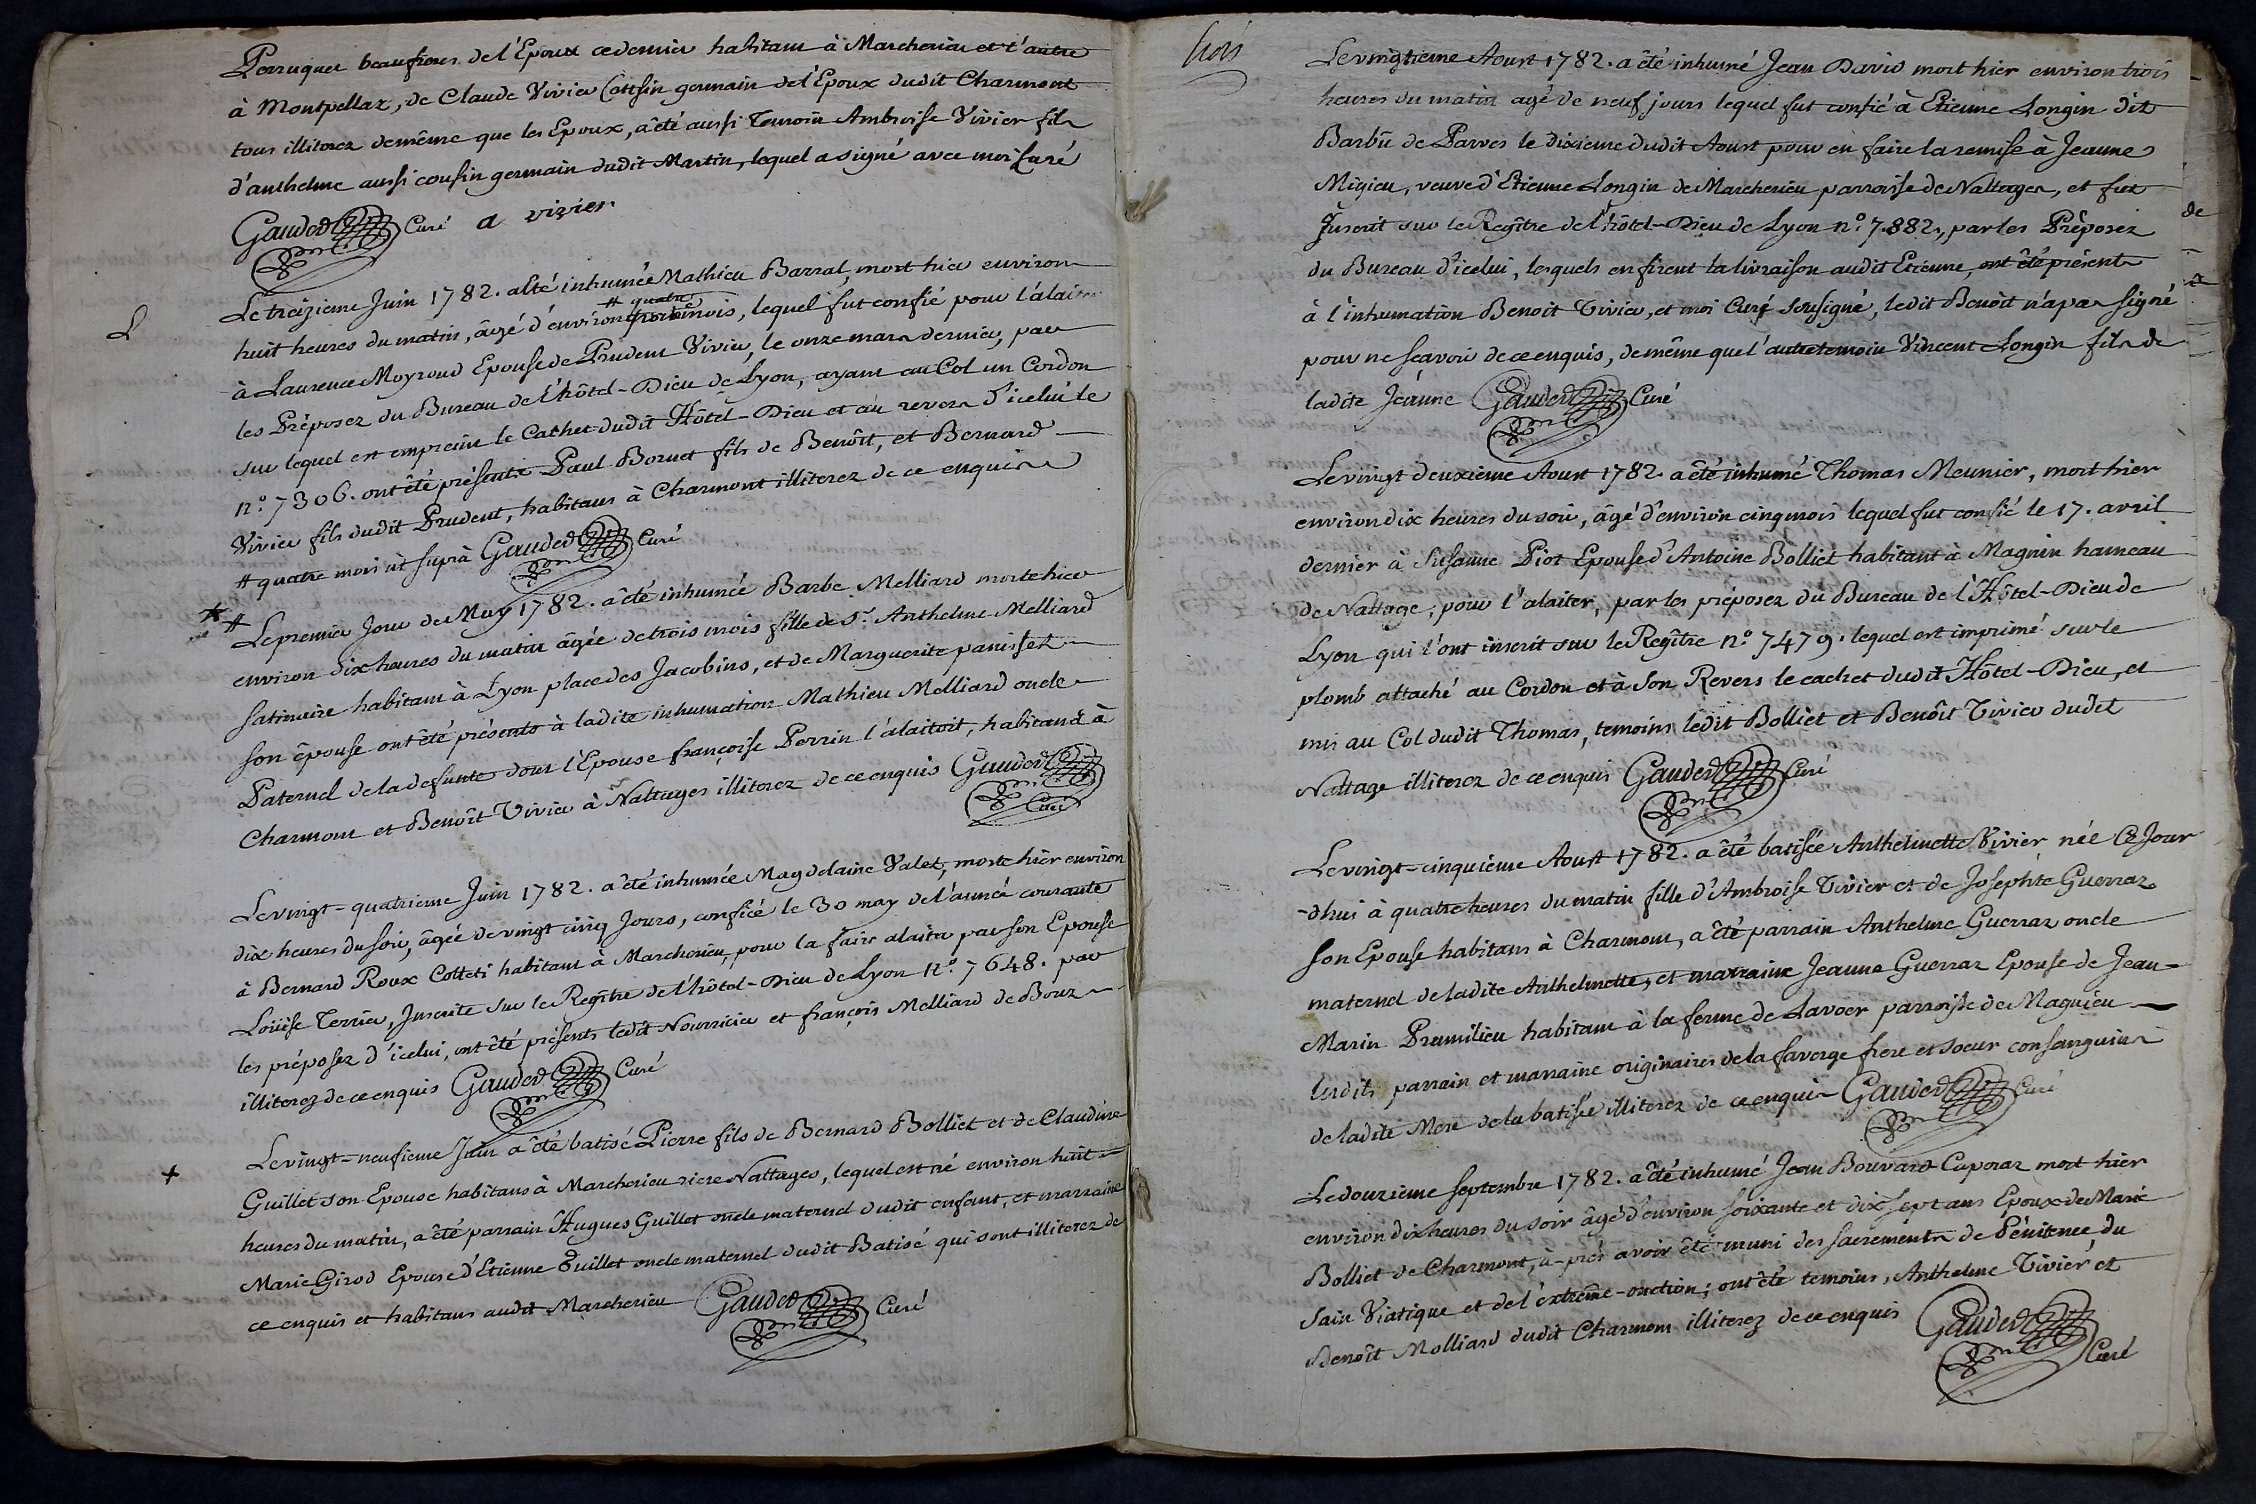 Perruquet beaufreres de l'Epoux ce dernier habitant à Marcherieu et l'autre
à Montpellaz, de Claude Vivier Cousin germain de l'Epoux dudit Charmont
tous illiterez de même que les Epoux, a été aussi Temoin Ambroise Vivier fils
d'anthelme aussi cousin germain dudit Martin, lequel a signé avec moi Curé
Gauded Curé a vivier
L
Le treizieme Juin 1782. a été inhumée Mathieu Barral, mort hier environ
# quatre
huit heures du matin, âgé d'environ mois, lequel fut confié pour l'alaiter
à Laurence Moyroud Epouse de Prudent Vivier, le onze mars dernier, par
les Préposez du Bureau de l'hôtel-Dieu de Lyon, ayant au Col un Cordon
sur lequel est empreint le Cachet dudit Hôtel-Dieu et au revers d'icelui le
n.° 7306. ont été présents Paul Bornet fils de Benôit, et Bernard
Vivier fils dudit Prudent, habitans à Charmont illiterez de ce enquis
# quatre mois ùt suprà Gauded Curé
* #
Le premier Jour de May 1782. a été inhumée Barbe Melliard morte hier
environ dix heures du matin âgée de trois mois fille de Sr. Anthelme Melliard
satinaire habitant à Lyon place des Jacobins, et de Marguerite panisset
son épouse ont été présents à ladite inhumation Mathieu Melliard oncle
Paternel de la defunte dont l'Epouse françoise Perrin l'alaitoit, habitand à
Charmont et Benoît Vivier à Nattages illiterez de ce enquis Gauded
Curé
Le vingt-quatrieme Juin 1782. a été inhumée Magdelaine Valet, morte hier environ
dix heures du soir, âgée de vingt cinq Jours, confiée le 30 may de l'année courante
à Bernard Roux Colleti habitant à Marcherieu, pour la faire alaiter par son Epouse
Loüise Terrier, Jnscrite sur le Regître de l'hôtel-Dieu de Lyon n.° 7648. par
les préposez d'icelui, ont été présents ledit Nourricier et françois Melliard de Bouz
illiterez de ce enquis Gauded Curé
+
Le vingt-neufieme Juin a été batisé Pierre fils de Bernard Bolliet et de Claudine
Guillet son Epouse habitans à Marcherieu riere Nattages, lequel est né environ huit
heures du matin, a été parrain Hugues Guillet oncle maternel dudit enfant, et marraine
Marie Girod Epouse d'Etienne Guillet oncle maternel dudit Batisé qui sont illiterez de
ce enquis et habitans audit Marcherieu Gauded Curé
trois
Le vingtieme Aoust 1782. a été inhumé Jean David mort hier environ trois
heures du matin agé de neuf jours lequel fut confié à Etienne Longin dit
Barbü de Parves le dixieme dudit Aoust pour en faire la remise à Jeanne
Migieu, veuve d'Etienne Longin de Marcherieu parroisse de Nattages, et fut
Jnscrit sur le Regître de l'hôtel-Dieu de Lyon n.° 7.882, par les Préposez
du Bureau d'icelui, lesquels en firent la livraison audit Etienne, ont été présents
à l'inhumation Benoit Vivier, et moi Curé sousigné, ledit Benôit n'a pas signé
pour ne scavoir de ce enquis, de même que l'autre temoin Vincent Longin fils de
ladite Jeanne Gauded Curé
Le vingt deuxieme Aoust 1782. a été inhumé Thomas Meunier, mort hier
environ dix heures du soir, âgé d'environ cinq mois lequel fut confié le 17. avril
dernier à Susanne Piot Epouse d'Antoine Bolliet habitant à Magnin hameau
de Nattage, pour l'alaiter, par les préposez du Bureau de l'Hôtel-Dieu de
Lyon qui l'ont inscrit sur le Regître n.° 7479. lequel est imprimé sur le
plomb attaché au Cordon et à son Revers le cachet dudit Hôtel-Dieu, et
mis au Col dudit Thomas, temoins ledit Bolliet et Benôit Vivier dudit
Nattage illiterez de ce enquis Gauded Curé
Le vingt-cinquieme Aoust 1782. a été batisée Anthelmette Vivier née Ce Jour
-dhui à quatre heures du matin fille d'Ambroise Vivier et de Josephte Guerraz
son Epouse habitans à Charmont, a été parrain Anthelme Guerraz oncle
maternel de ladite Anthelmette, et marraine Jeanne Guerraz Epouse de Jean-
Marin Premilieu habitant à la ferme de Lavoer parroisse de Magnieu
lesdits parrain et marraine originaires de la faverge frere et soeur consanguins
de ladite Mere de la batisée illiterez de ce enquis Gauded Curé
Le douzieme septembre 1782. a été inhumé Jean Bouvard-Caporaz mort hier
environ dix heures du soir âgé d'environ soixante et dix sept ans Epoux de Marie
Bolliet de Charmont, a-près avoir été muni des sacrements de Pénitence, du
Sain Viatique et de l'extrême-onction; ont été temoins, Anthelme Vivier et
Benoît Molliard dudit Charmont illiterez de ce enquis Gauded
Curé